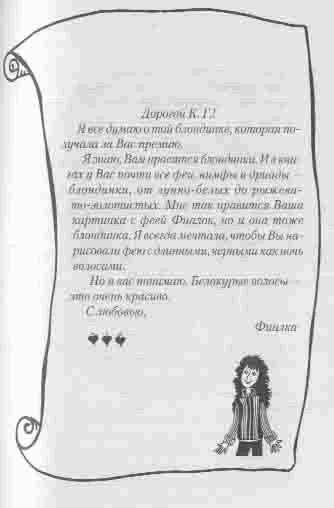 Дорогой К. Г.!
Я все думаю о той блондинке, которая по-
лучала за Вас премию.
Я знаю, Вам нравятся блондинки. И в кни-
гах у Вас почти все феи, нимфы и дриады —
блондинки, от лунно-белых до рыжева-
то-золотистых. Мне так нравится Ваша
картинка с феей Фиалок, но и она тоже
блондинка. Я всегда мечтала, чтобы Вы на-
рисовали фею с длинными, черными как ночь
волосами.
Но я вас понимаю. Белокурые волосы —
это очень красиво.
С любовью,
Фиалка